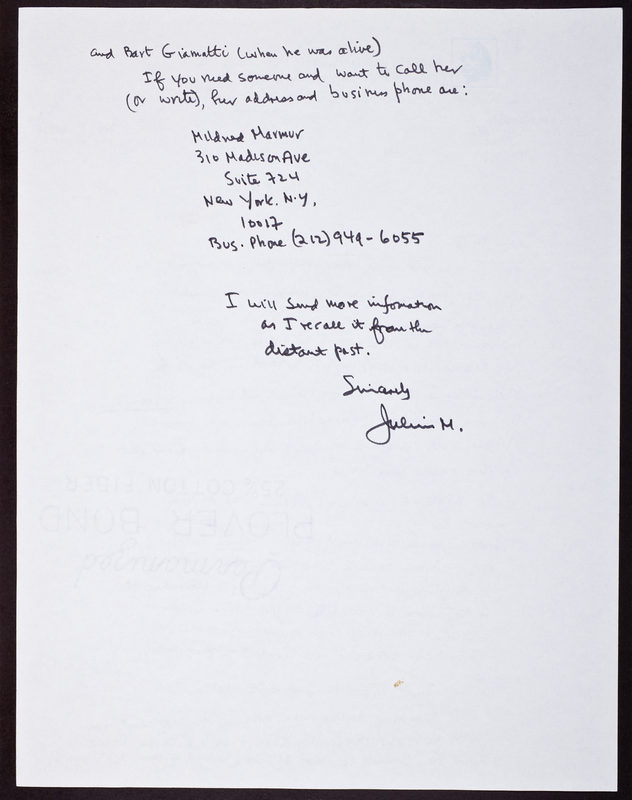 and Bart Giamatti (when he was alive)
If you need someone and want to call her
(or write), her address and business phone are:
Mildred Marmur
310 Madison Ave
Suite 724
New York. N.Y.
10017
Bus. Phone (212) 949-6055
I will send more information
as I recall it from the
distant past.
Sincerely
Julius M.
25% COTTON FIBER
PLOVER BOND
Permanized